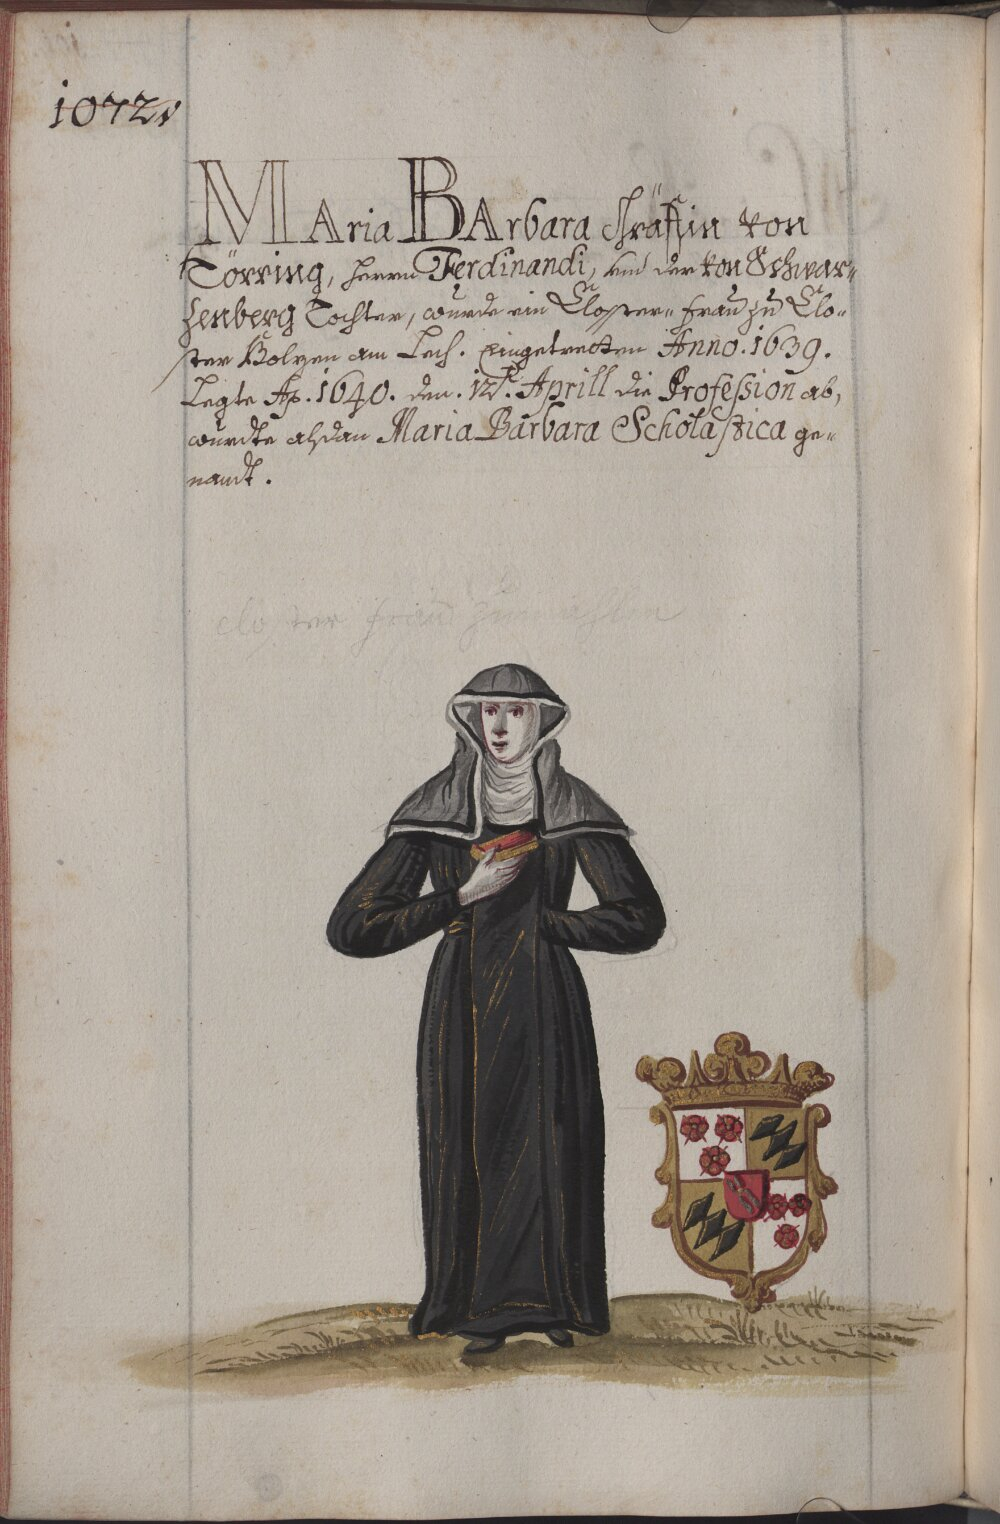 1072.
MAria BArbara Gräffin von
Törring, herrn Ferdinandi, und der von Schwar-
zenberg Tochter, wurde ein Closter-frau zu Clo-
ster Holzen am Lech. Eingetretten Anno. 1639.
Legte Aō. 1640. den. 12t. Aprill die Profession ab,
wurdte alsdan Maria Barbara Scholastica ge-
nandt.
closter frau zumahlen